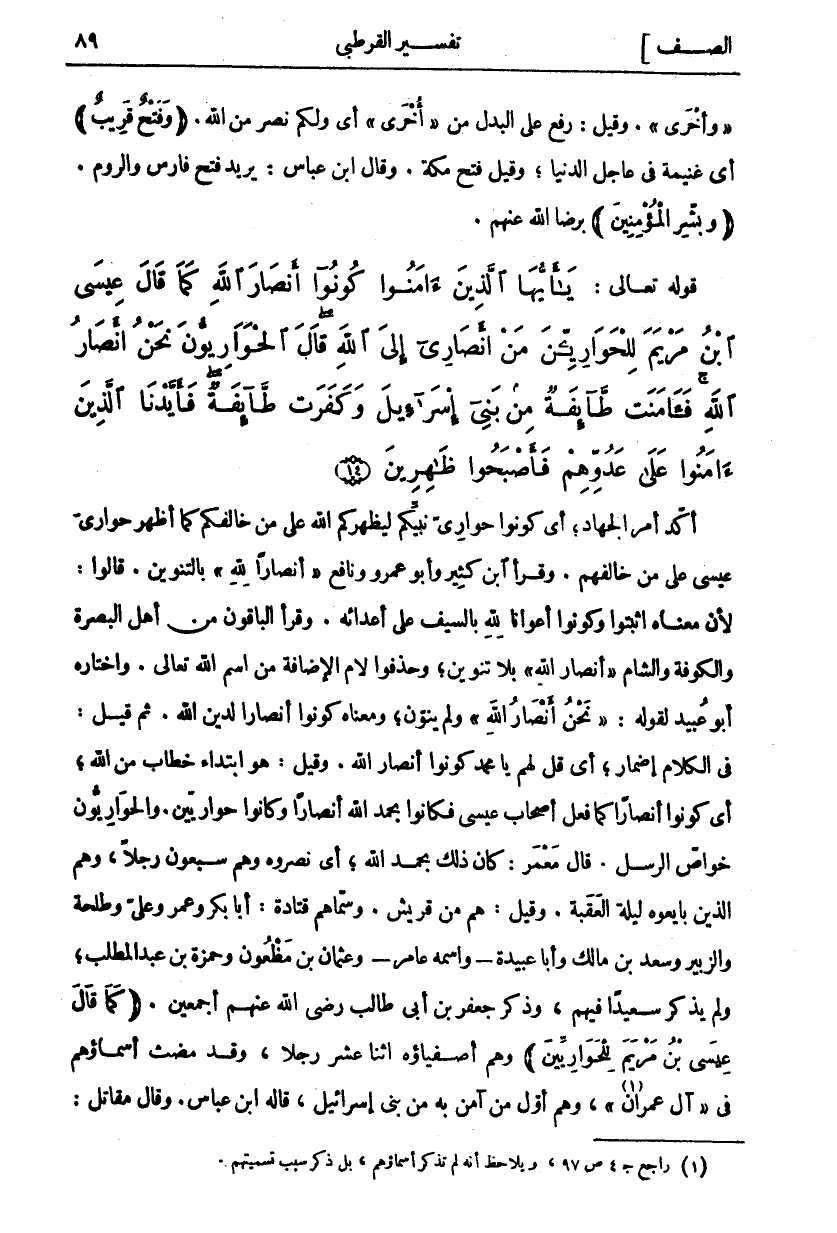 الصف ]
تفسير القرطبى
٨٩
« وأخْرَى » . وقيل : رفع على البدل من « أُخْرَى » أى ولكم نصر من الله . ﴿ وَفَتْحٌ قَرِيبٌ ﴾
أى غنيمة فى عاجل الدنيا ؛ وقيل فتح مكة . وقال ابن عباس : يريد فتح فارس والروم .
﴿ وبشِّرِ الْمُؤْمِنِينَ ﴾ برضا الله عنهم .
قوله تعـالى : يَـٰٓأَيُّهَا ٱلَّذِينَ ءَامَنُـوا كُونُوٓا أَنصَارَ ٱللَّهِ كَمَا قَالَ عِيسَى
ٱبْنُ مَرْيَمَ لِلْحَوَارِيِّـۧنَ مَنْ أَنصَارِىٓ إِلَى ٱللَّهِ ۖ قَالَ ٱلْحَوَارِيُّونَ نَحْنُ أَنصَارُ
ٱللَّهِ ۚ فَـَٔامَنَت طَّآئِفَةٌ مِنۢ بَنِىٓ إِسْرَٰٓءِيلَ وَكَفَرَت طَّآئِفَـةٌ ۖ فَأَيَّدْنَا ٱلَّذِينَ
ءَامَنُوا عَلَىٰ عَدُوِّهِمْ فَأَصْبَحُوا ظَٰهِرِينَ ﴿١٤﴾
أكّد أمر الجهاد ؛ أى كونوا حوارىّ نبيِّكم ليظهركم الله على من خالفكم كما أظهر حوارىّ
عيسى على من خالفهم . وقـرأ ٱبن كَثير وأبو عمرو ونافع « أنصارًا لله » بالتنوين . قالوا :
لأن معنـاه اثبتوا وكونوا أعوانا لله بالسيف على أعدائه . وقرأ الباقون من أهل البصرة
والكوفة والشام « أنصار اللهِ » بلا تنوين ؛ وحذفوا لام الإضافة من اسم الله تعالى . واختاره
أبو عُبيد لقوله : « نَحْنُ أَنْصَارُ اللهِ » ولم ينوّن ؛ ومعناه كونوا أنصارا لدين الله . ثم قيـل :
فى الكلام إضمار ؛ أى قل لهم يا محمد كونوا أنصار الله . وقيل : هو ابتداء خطاب من الله ؛
أى كونوا أنصارًا كما فعل أصحاب عيسى فـكانوا بحمد الله أنصارًا وكانوا حواريّين . والحَوَاريُّون
خواصّ الرسـل . قال مَعْمَر : كان ذلك بحمـد الله ؛ أى نصروه وهم سـبعون رجلاً ، وهم
الذين بايعوه ليلة العَقَبة . وقيل : هم من قريش . وسمّاهم قتادة : أبا بكر وعمر وعلىّ وطلحة
والزبير وسعد بن مالك وأبا عبيدة ــ واسمه عامر ــ وعثمان بن مَظْعون وحمزة بن عبدالمطلب ؛
ولم يذكر سـعيدًا فيهم ، وذكر جعفر بن أبى طالب رضى الله عنهـم أجمعين . ﴿ كَمَا قَالَ
عِيسَى بْنُ مَرْيَمَ لِلْحَوَارِيِّينَ ﴾ وهم أصـفياؤه اثنا عشر رجلا ، وقـد مضت أسمـاؤهم
فى « آل عمران (١) » ، وهم أوّل من آمن به من بنى إسرائيل ، قاله ابن عباس . وقال مقاتل :
(١) راجع جـ ٤ ص ٩٧ ، ويلاحظ أنه لم تذكر أسماؤهم ، بل ذكر سبب تسميتهم .